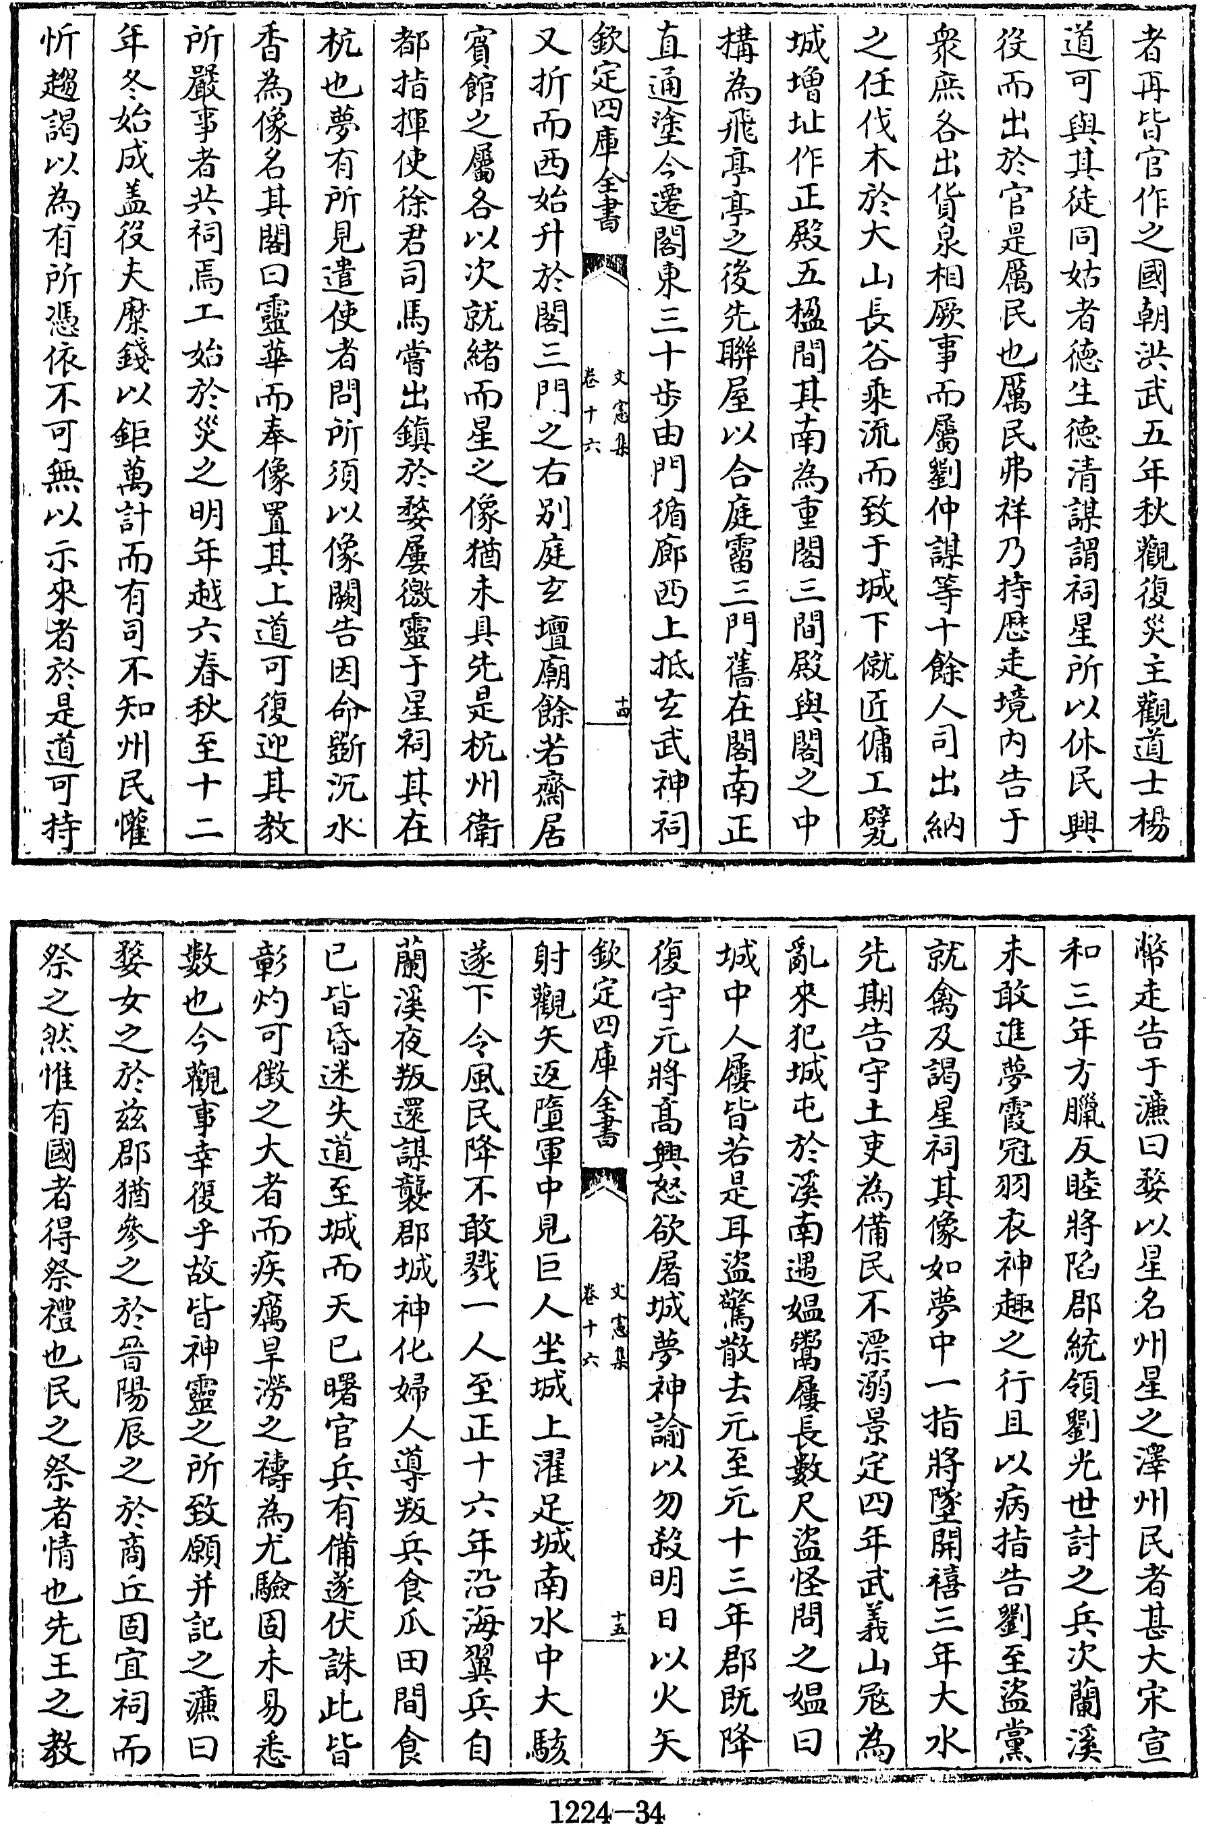 者再皆官作之國朝洪武五年秋觀復災主觀道士楊
道可與其徒同姑者德生德清謀謂祠星所以休民興
役而出於官是厲民也厲民弗祥乃持厯走境内告于
衆庶各出貨泉相厥事而屬劉仲謀等十餘人司出納
之任伐木於大山長谷乘流而致于城下僦匠傭工甓
城增址作正殿五楹間其南為重閣三間殿與閣之中
搆為飛亭亭之後先聯屋以合庭霤三門舊在閣南正
直通塗今遷閣東三十步由門循廊西上抵玄武神祠
欽定四庫全書
文憲集
卷十六
十四
又折而西始升於閣三門之右别庭玄壇廟餘若齋居
賓館之屬各以次就緒而星之像猶未具先是杭州衛
都指揮使徐君司馬嘗出鎮於婺屢徼靈于星祠其在
杭也夢有所見遣使者問所須以像闕告因命斵沉水
香為像名其閣曰靈華而奉像置其上道可復迎其教
所嚴事者共祠焉工始於災之明年越六春秋至十二
年冬始成盖役夫糜錢以鉅萬計而有司不知州民懽
忻趨謁以為有所憑依不可無以示來者於是道可持
幣走告于濂曰婺以星名州星之澤州民者甚大宋宣
和三年方臘反睦將陷郡統領劉光世討之兵次蘭溪
未敢進夢霞冠羽衣神趣之行且以病指告劉至盜黨
就禽及謁星祠其像如夢中一指將墜開禧三年大水
先期告守土吏為備民不漂溺景定四年武義山冦為
亂來犯城屯於溪南遇媪鬻屨長數尺盜怪問之媪曰
城中人屨皆若是耳盜驚散去元至元十三年郡既降
復守元將髙興怒欲屠城夢神諭以勿殺明日以火矢
欽定四庫全書
文憲集
卷十六
十五
射觀矢返墮軍中見巨人坐城上濯足城南水中大駭
遂下令風民降不敢戮一人至正十六年沿海翼兵自
蘭溪夜叛還謀襲郡城神化婦人導叛兵食瓜田間食
已皆昏迷失道至城而天已曙官兵有備遂伏誅此皆
彰灼可徴之大者而疾癘旱澇之禱為尤驗固未易悉
數也今觀事幸復乎故皆神靈之所致願并記之濂曰
婺女之於兹郡猶參之於晉陽辰之於商丘固宜祠而
祭之然惟有國者得祭禮也民之祭者情也先王之教
1224—34